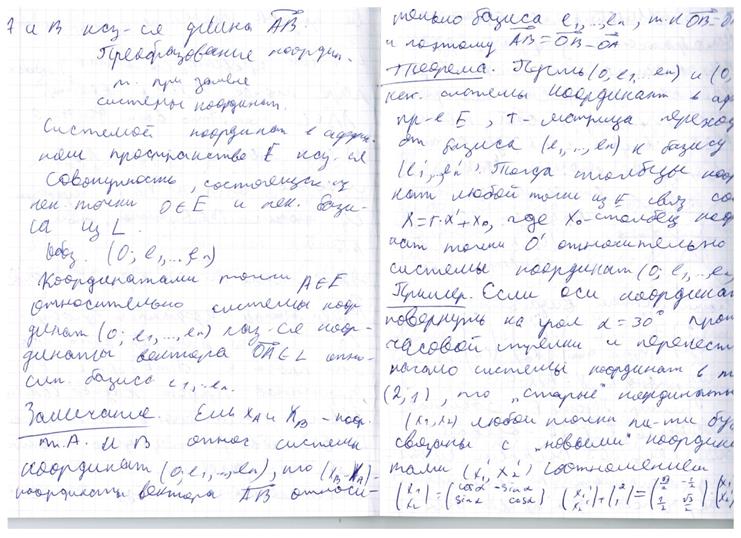 и B наз-ся длина AB.
Преобразование координ.
т. при замене
системы координат.
Системой координат в аффин-
ном пространстве E наз-ся
совокупность, состоящая из
нек. точки O∈E и нек. бази-
са из L.
Обоз. (O; e1,...,en)
Координатами точки A∈E
относительно системы коор-
динат (O; e1,...,en) наз-ся коор-
динаты вектора OA∈L отно-
сит. базиса e1,..en.
Замечание. Если XA и XB - коор.
т. A и B относ системы
координат (O, e1,...,en), то (XB-XA)-
координаты вектора AB относи-
только базиса e1,...,en, т.к OB-O
и поэтому AB=OB-OA
Теорема. Пусть (O, e1,...en) и (O,
нек. системы координат в аф
пр-е E, T- матрица переход
от базиса (e1,...,en) к базису
(e1',..,en'. Тогда столбцы коор
нат любой точки из E связ соо
X=T·X'+X0, где X0-столбец коор
нат точки O' относительно
системы координат (O; e1,..,en
Пример. Если оси координат
повернуть на угол α=30° прот
часовой стрелки и перенест
начало системы координат в т
(2;1), то „старые" координаты
(x1,x2) любой точки пл-ти бу
связаны с „новыми" координа
тами (x1', x2') соотношением
(x1 x2)=(cosα -sinα sinα cosα) (x1' x2')+(2 1)=(√3/2 -1/2 1/2 √3/2)(x1